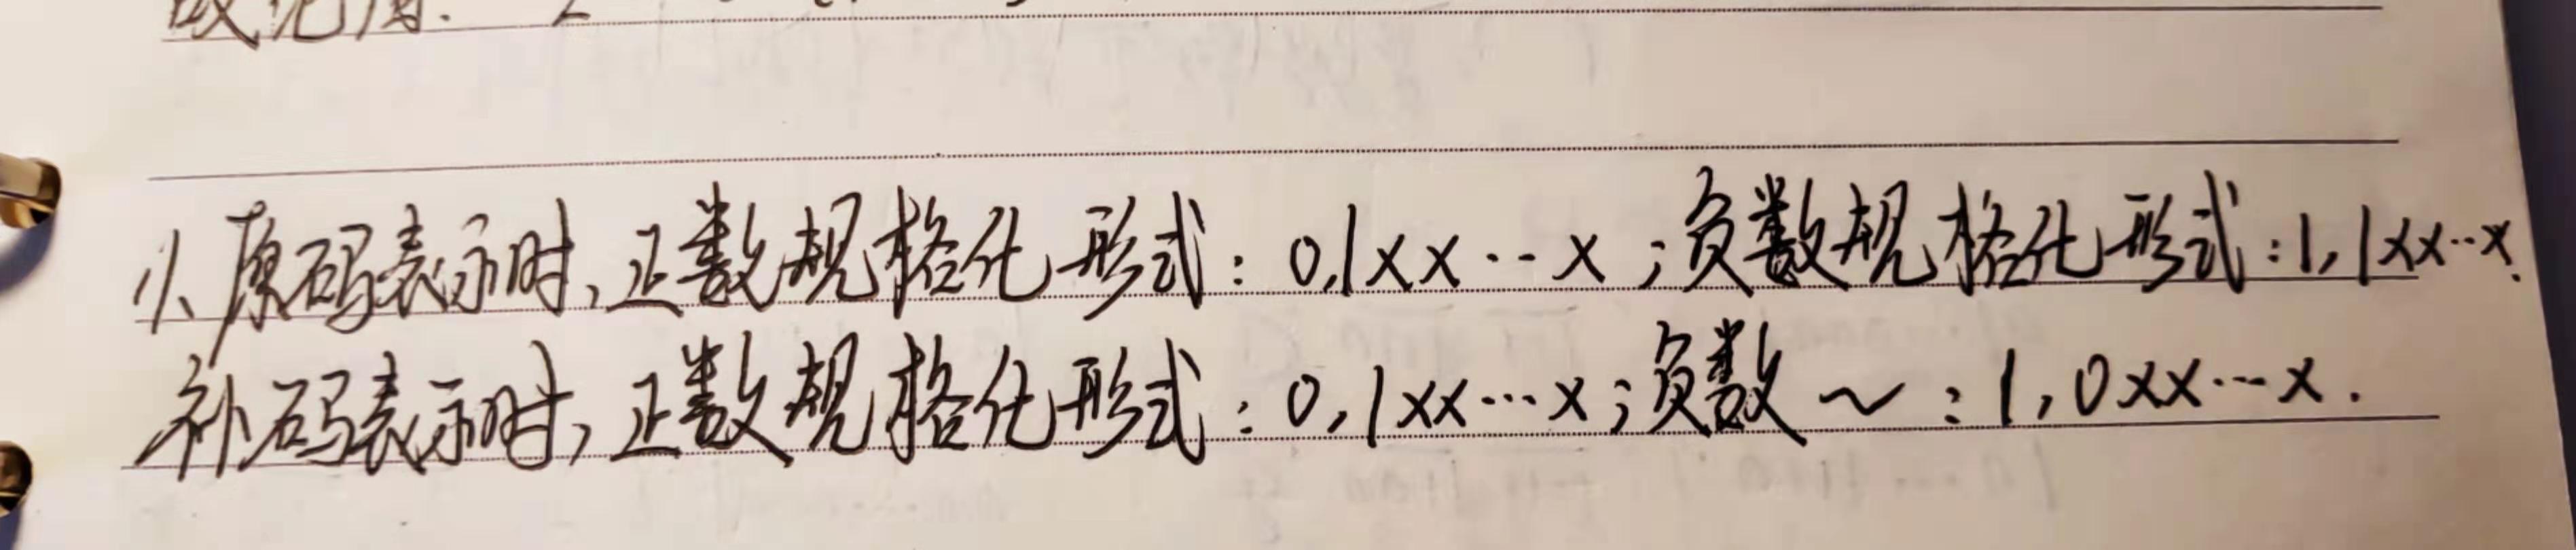 1、原码表示时、正数规格化形式：0,1xx···x；负数规格化形式：1,1xx···x.
补码表示时，正数规格化形式：0,1xx···x；负数～：1,0xx···x.